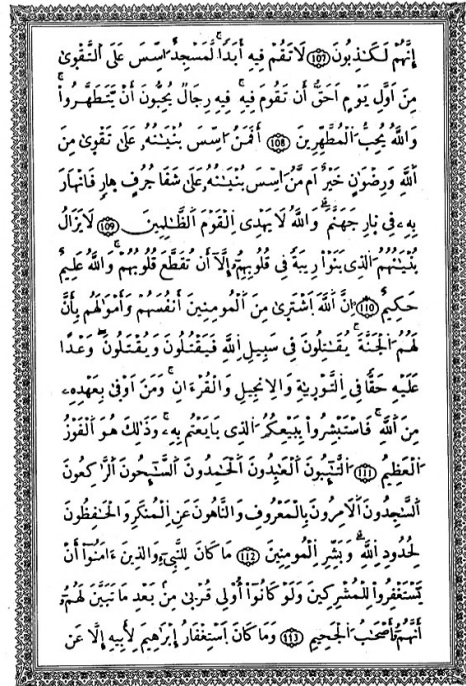 إِنَّهُمْ لَكَٰذِبُونَ (107) لَا تَقُمْ فِيهِ أَبَدًا لَّمَسْجِدٌ اُسِّسَ عَلَى اَلتَّقْوِىٰ
مِنَ اَوَّلِ يَوْمٍ اَحَقُّ أَن تَقُومَ فِيهِ فِيهِ رِجَالٌ يُحِبُّونَ أَنْ يَّتَطَهَّرُواْ
وَاللَّهُ يُحِبُّ اُلْمُطَّهِّرِينَ (108) أَفَمَنُ اسِّسَ بُنْيَٰنُهُۥ عَلَىٰ تَقْوِىٰ مِنَ
اَللَّهِ وَرِضْوَٰنٍ خَيْرٌ اَم مَّنُ اسِّسَ بُنْيَٰنُهُۥ عَلَىٰ شَفَا جُرُفٍ هِارٍ فَانْهَارَ
بِهِۦ فِي نِارِ جَهَنَّمَ وَاللَّهُ لَا يَهْدِى اِلْقَوْمَ اَلظَّٰلِمِينَ (109) لَا يَزَالُ
بُنْيَٰنُهُمُ اُلذِى بَنَوْاْ رِيبَةً فِي قُلُوبِهِمُۥٓ إِلَّآ أَن تُقَطَّعَ قُلُوبُهُمْ وَاللَّهُ عَلِيمٌ
حَكِيمٌ (110) اِنَّ اَللَّهَ اَشْتَرِىٰ مِنَ اَلْمُومِنِينَ أَنفُسَهُمْ وَأَمْوَٰلَهُم بِأَنَّ
لَهُمُ اُلْجَنَّةَ يُقَٰتِلُونَ فِي سَبِيلِ اِللَّهِ فَيَقْتُلُونَ وَيُقْتَلُونَ وَعْدًا
عَلَيْهِ حَقًّا فِي اِلتَّوْرِىٰةِ وَالِانجِيلِ وَالْقُرْءَانِ وَمَنَ اَوْفِىٰ بِعَهْدِهِۦ
مِنَ اَللَّهِ فَاسْتَبْشِرُواْ بِبَيْعِكُمُ اُلذِى بَايَعْتُم بِهِۦ وَذَٰلِكَ هُوَ اَلْفَوْزُ
اُلْعَظِيمُ (111) اُلتَّٰٓئِبُونَ اَلْعَٰبِدُونَ اَلْحَٰمِدُونَ اَلسَّٰٓئِحُونَ اَلرَّٰكِعُونَ
اَلسَّٰجِدُونَ اَلَامِرُونَ بِالْمَعْرُوفِ وَالنَّاهُونَ عَنِ اِلْمُنكَرِ وَالْحَٰفِظُونَ
لِحُدُودِ اِللَّهِ وَبَشِّرِ اِلْمُومِنِينَ (112) مَا كَانَ لِلنَّبِىٓءِ وَالذِينَ ءَامَنُوٓاْ أَنْ
يَّسْتَغْفِرُواْ لِلْمُشْرِكِينَ وَلَوْ كَانُوٓاْ أُوْلِى قُرْبِىٰ مِنۢ بَعْدِ مَا تَبَيَّنَ لَهُمُۥٓ
أَنَّهُمُۥٓ أَصْحَٰبُ اُلْجَحِيمِ (113) وَمَا كَانَ اَسْتِغْفَارُ إِبْرَٰهِيمَ لِأَبِيهِ إِلَّا عَن